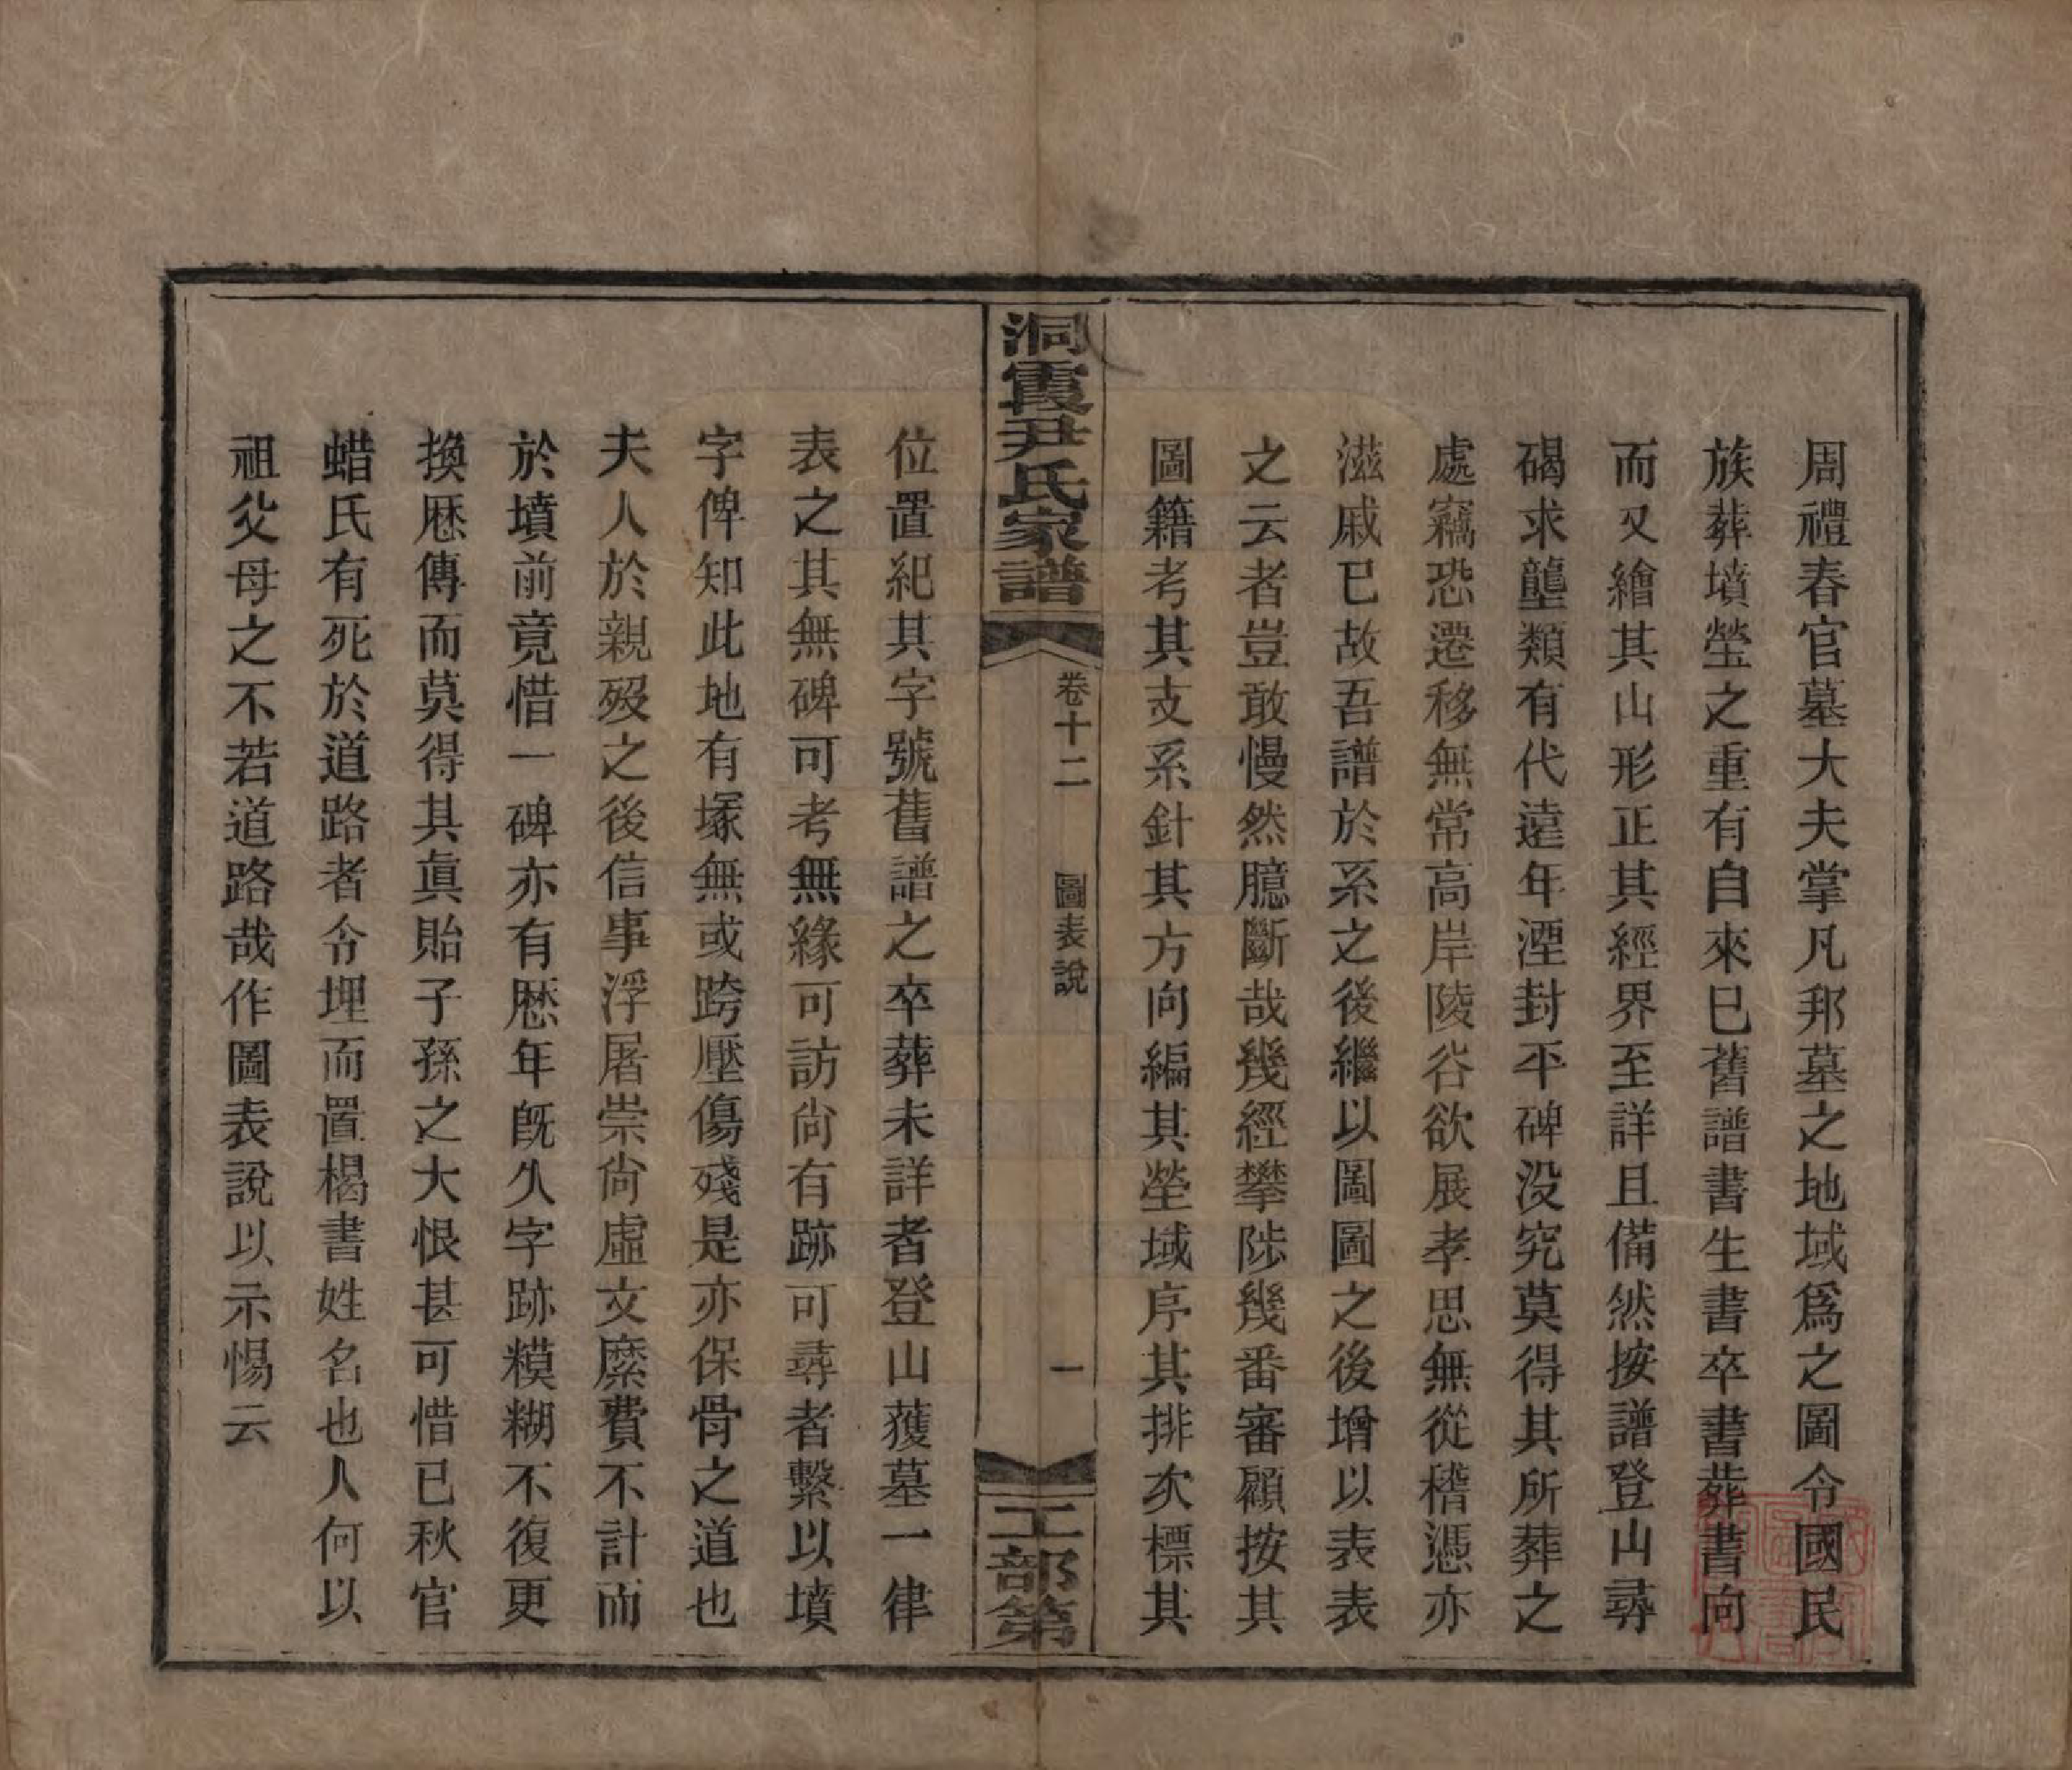 周禮春官墓大夫掌凡邦墓之地域爲之圖令國民
族葬墳塋之重有自來巳舊譜書生書卒書葬書向
而又繪其山形正其經界至詳且備然按譜登山尋
碣求壟類有代遠年湮封平碑没究莫得其所葬之
處竊恐遷移無常高岸陵谷欲展孝思無從稽憑亦
滋戚巳故吾譜於系之後繼以圖圖之後增以表表
之云者豈敢慢然臆斷哉幾經攀陟幾番審顧按其
圖籍考其支系針其方向編其塋域序其排次標其
洞霞尹氏家譜
卷十二 圖表說 一
工部第
位置紀其字號舊譜之卒葬未詳者登山獲墓一律
表之其無碑可考無緣可訪尙有跡可尋者繫以墳
字俾知此地有塚無或跨壓傷殘是亦保骨之道也
夫人於親歿之後信事浮屠崇尙虛文縻費不計而
於墳前竟惜一碑亦有厯年旣久字跡糢糊不復更
換厯傳而莫得其眞貽子孫之大恨甚可惜已秋官
蜡氏有死於道路者令埋而置楬書姓名也人何以
祖父母之不若道路哉作圖表說以示惕云